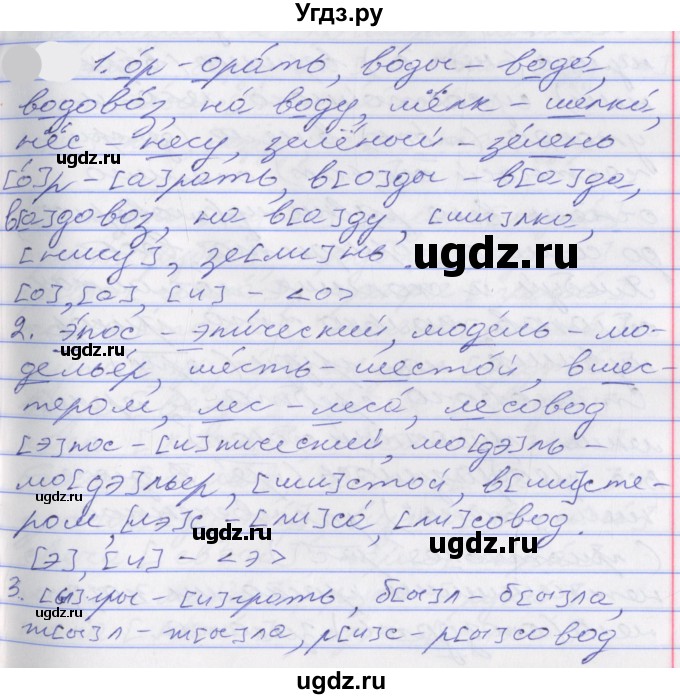 Угдз.ру
1. о́р - ора́ть, во́ды - вода́,
водово́з, на́ воду, шёлк - шелка́,
нёс - несу, зелёный - зе́лень
[о́]р - [а]рать, в[о]ды - в[а]да,
в[а]довоз, на в[а]ду, [ши]лка,
[нису], зе[ли]нь.
[о], [а], [и] - <о>
2. э́пос - эпи́ческий, моде́ль - мо-
делье́р, ше́сть - шесто́й, вшес-
тером, лес - леса́, лесовод
[э]пос - [и]пический, мо[дэ]ль -
мо[дэ]льер, [ши]стой, в[ши]сте-
ром, [лэ]с - [ли]са́, [ли]совод.
[э], [и] - <э>
3. [ы]гры - [и]грать, б[ы]л - б[ы]ла,
ж[ы]л - ж[ы]ла, р[и]с - р[ы]совод
ugdz.ru
ugdz.ru
ugdz.ru
ugdz.ru
ugdz.ru
ugdz.ru
ugdz.ru
ugdz.ru
ugdz.ru
ugdz.ru